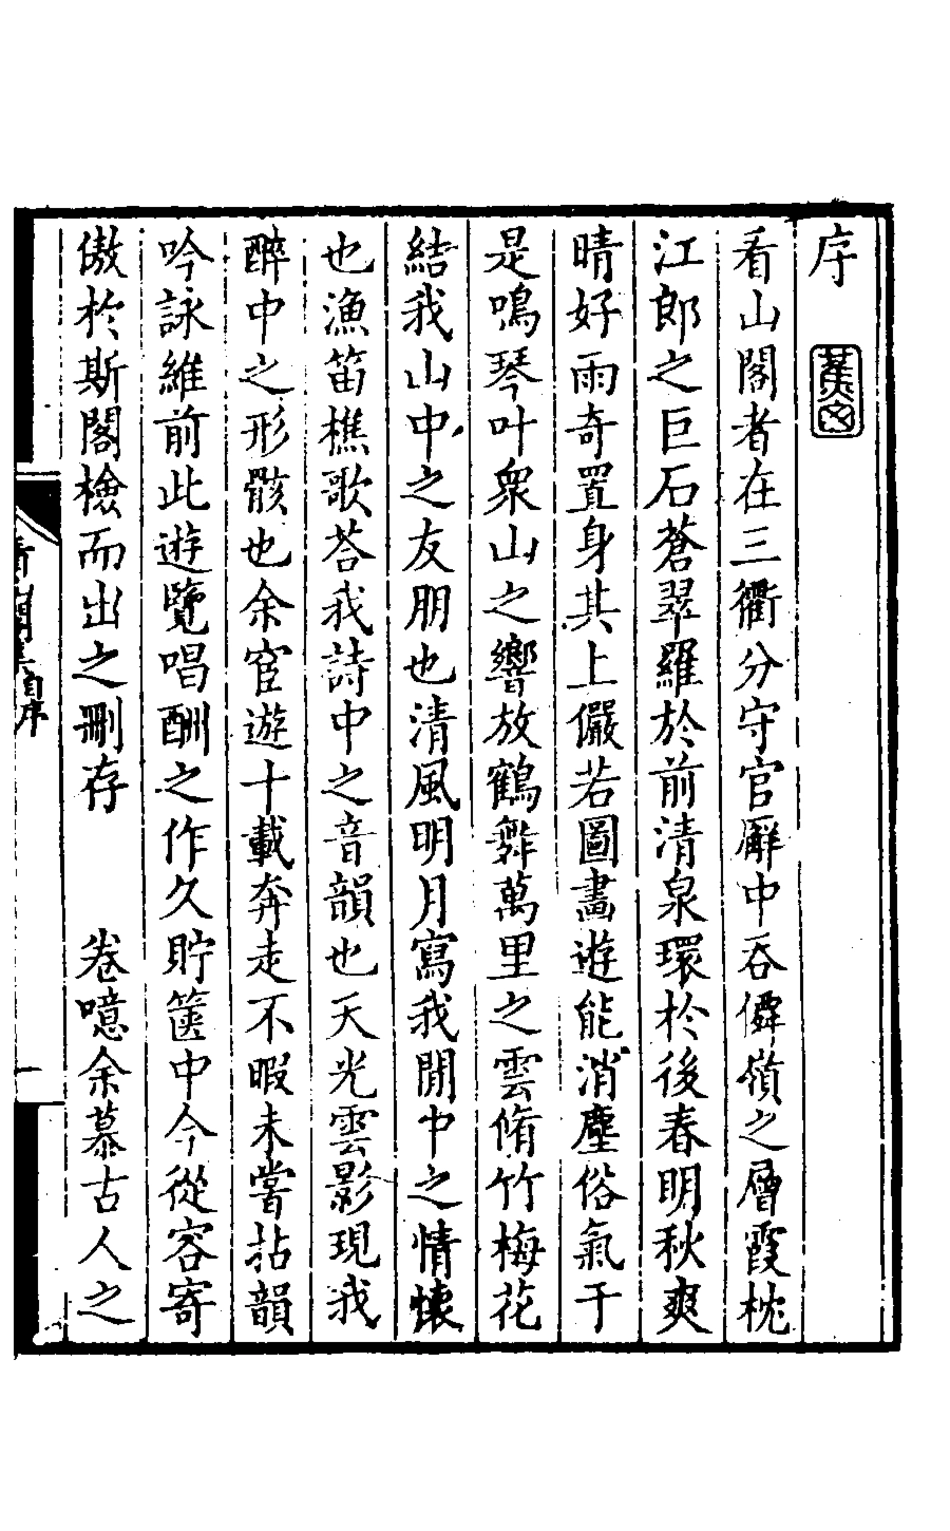 序
看山閣者在三衢分守官廨中吞僊嶺之層霞枕
江郎之巨石蒼翠羅於前清泉環於後春明秋爽
晴好雨奇置身其上儼若圖畵遊能消塵俗氣于
是鳴琴叶衆山之響放鶴舞萬里之雲脩竹梅花
結我山中之友朋也清風明月寫我閒中之情懷
也漁笛樵歌荅我詩中之音韻也天光雲影現我
醉中之形骸也余宦遊十載奔走不暇未嘗拈韻
吟詠維前此遊覽唱酬之作久貯篋中今從容寄
傲於斯閣檢而出之刪存 卷噫余慕古人之